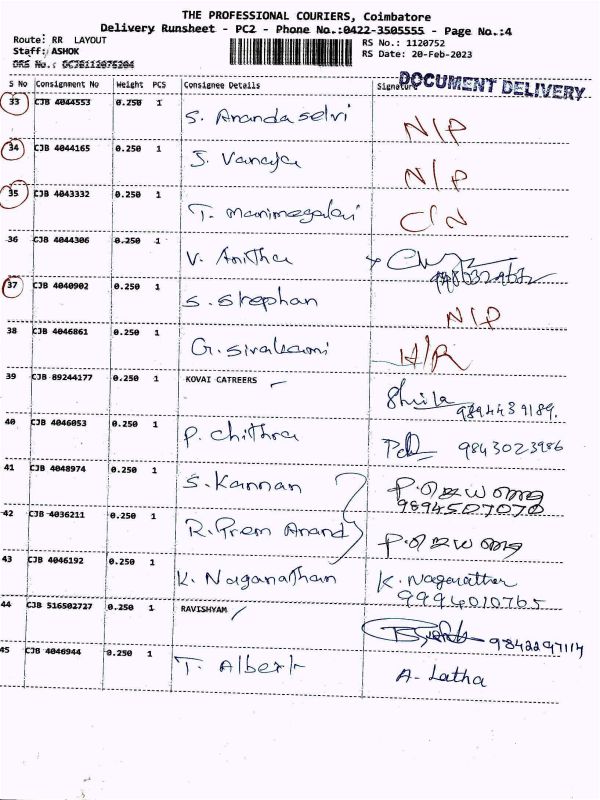 THE PROFESSIONAL COURIERS, Coimbatore
Delivery Runsheet - PC2 - Phone No.:0422-3505555 - Page No.:4
Route: RR LAYOUT
RS No.: 1120752
Staff: ASHOK
RS Date: 20-Feb-2023
DRS No.:
S No Consignment No Weight PCS Consignee Details Signature
DOCUMENT DELIVERY
33 CJB 4044553 0.250 1 S. Anandaselvi N/P
34 CJB 4044165 0.250 1 J. Vanaja N/P
35 CJB 4043332 0.250 1 T. Manimegalai C/N
36 CJB 4044306 0.250 1 V. Anitha
37 CJB 4040902 0.250 1 S. Stephan N/P
38 CJB 4046861 0.250 1 G. Sivakami H/R
39 CJB 89244177 0.250 1 KOVAI CATREERS Shuila
9894439189.
40 CJB 4046053 0.250 1 P. Chithra 9843023986
41 CJB 4048974 0.250 1 S. Kannan
9894507070
42 CJB 4036211 0.250 1 R. Prem Anand
43 CJB 4046192 0.250 1 K. Naganathan K. Naganathan
9994010765
44 CJB 516502727 0.250 1 RAVISHYAM
9842297114
45 CJB 4046944 0.250 1 T. Albert A. Latha